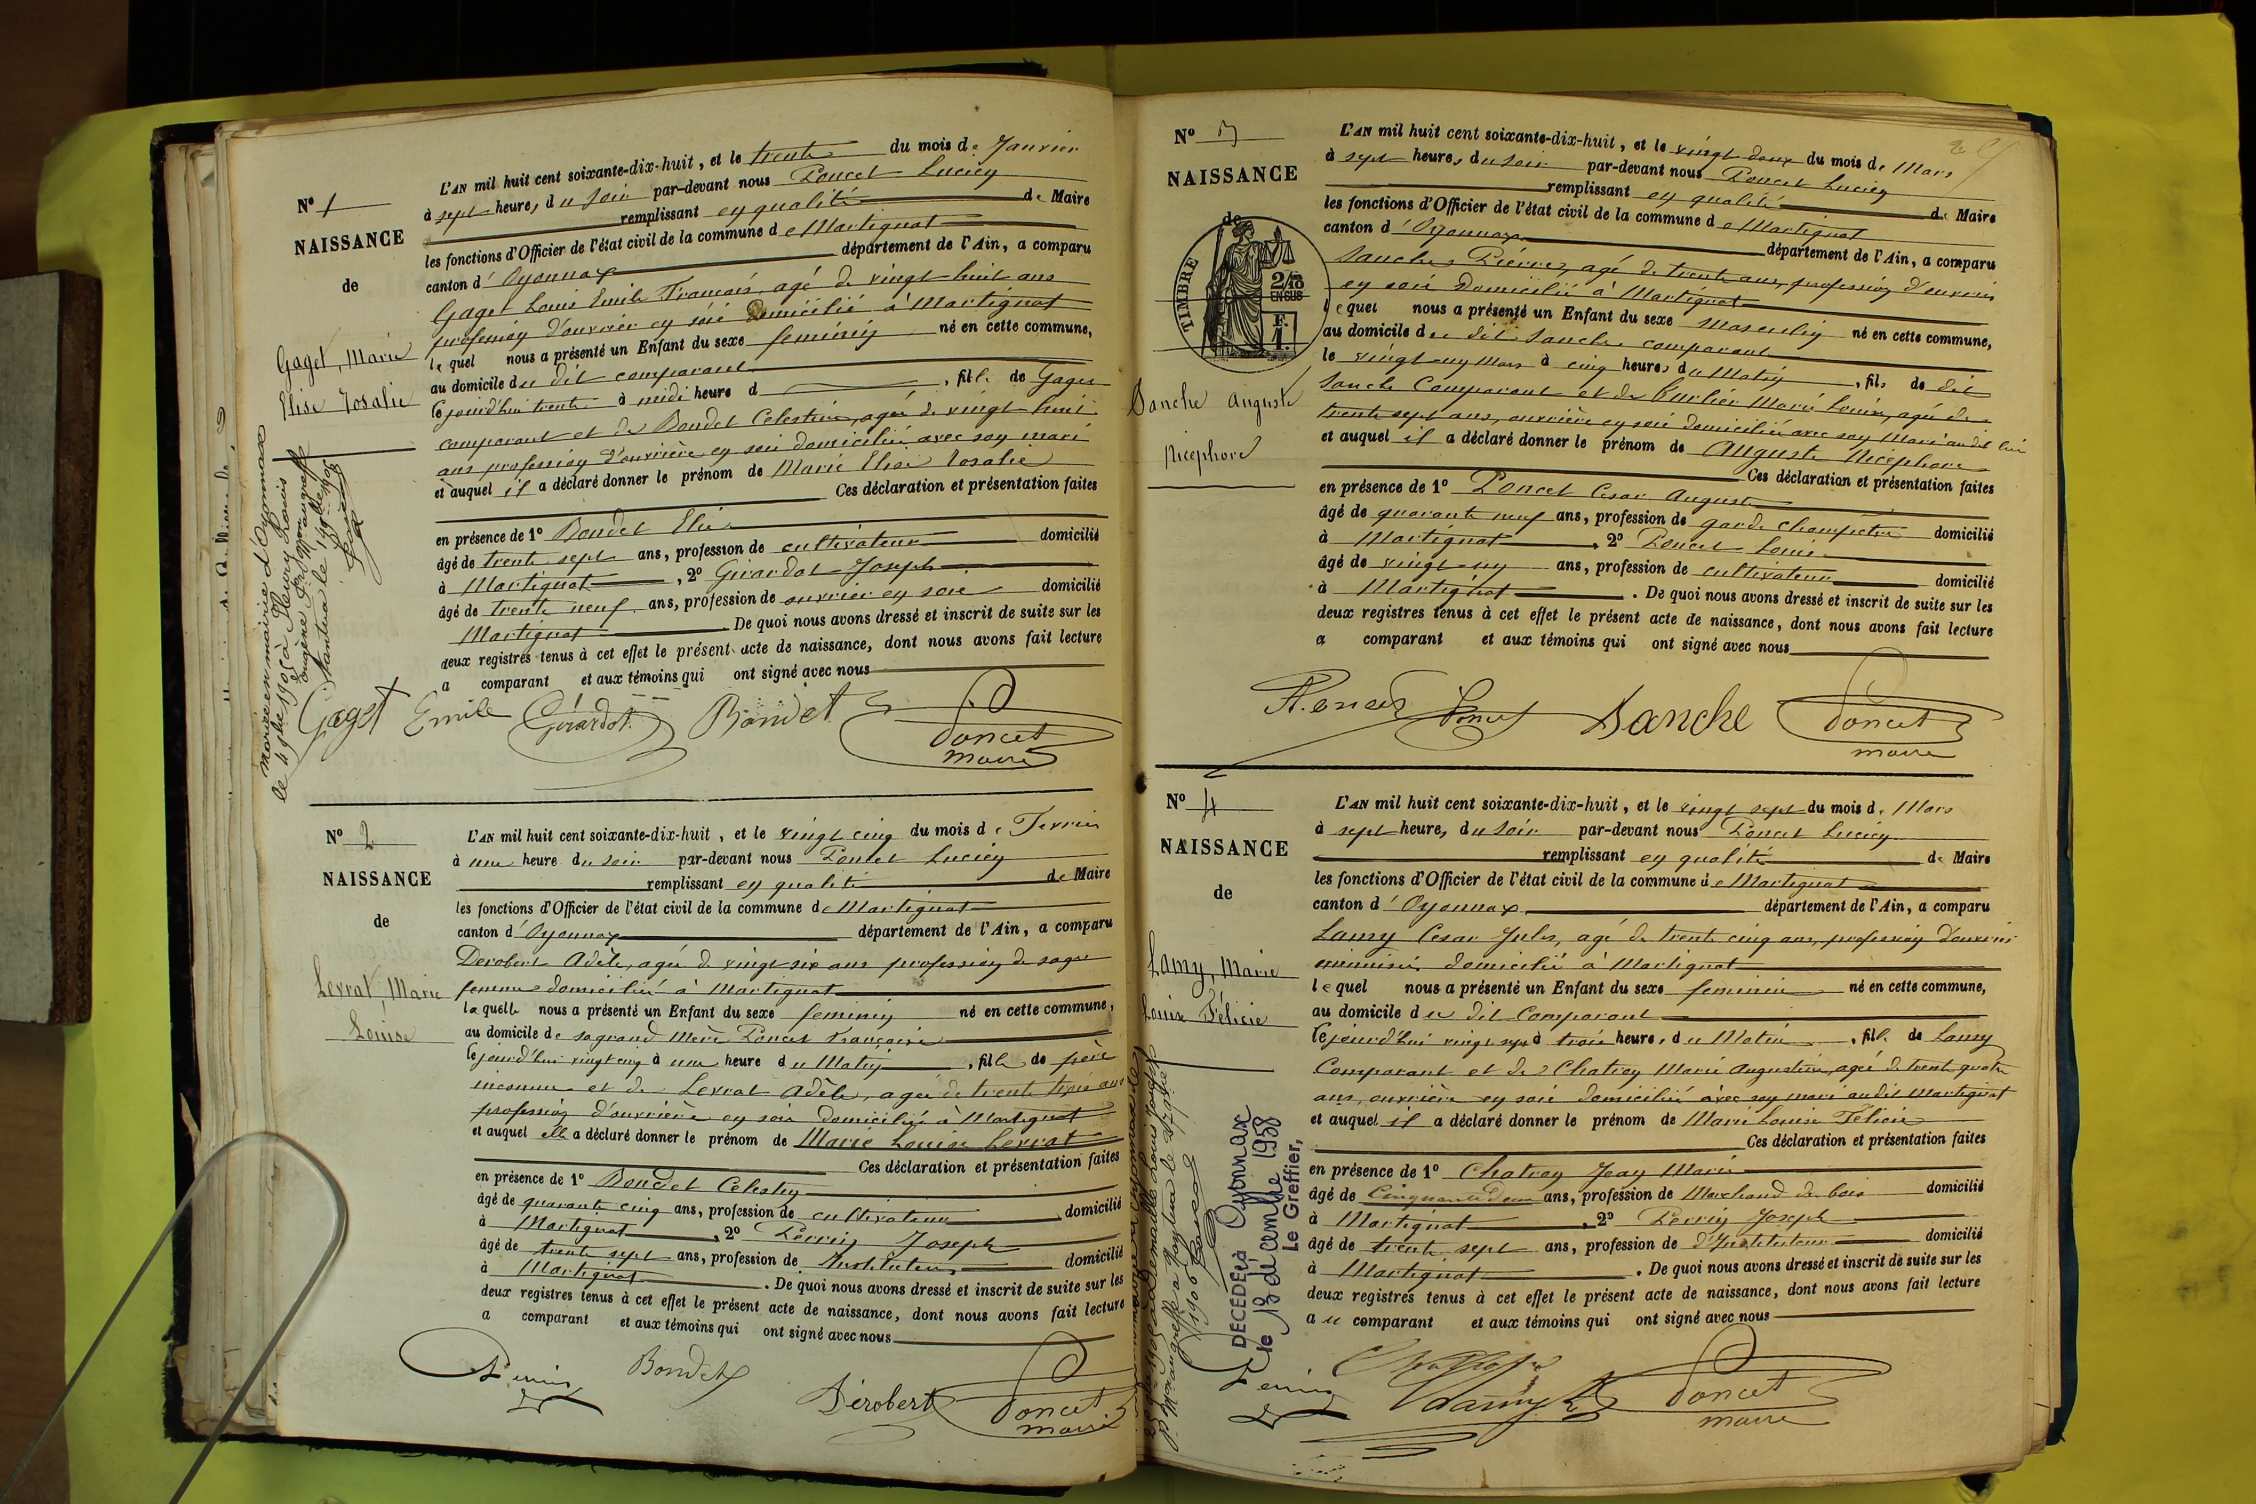 N° 1
NAISSANCE
de
Gaget, Marie
Elise Rosalie
L'AN mil huit cent soixante-dix-huit, et le trente du mois de Janvier
à sept heures du soir par-devant nous Poncet Lucien
remplissant en qualité de Maire
les fonctions d'Officier de l'état civil de la commune de Martignat
canton d'Oyonnax département de l'Ain, a comparu
Gaget Louis Emile François, agé de vingt huit ans
profession d'ouvrier en soie domicilié à Martignat
lequel nous a présenté un Enfant du sexe féminin né en cette commune,
au domicile du dit comparant
cejourd'hui trente à midi heure d , fille de Gaget
comparant et de Bondet Celestine, agée de vingt huit
ans profession d'ouvrière en soie domiciliée avec son mari
et auquel il a déclaré donner le prénom de Marie Elise Rosalie
Ces déclaration et présentation faites
en présence de 1° Bondet Elie
âgé de trente sept ans, profession de cultivateur domicilié
à Martignat , 2° Girardot Joseph
âgé de trente neuf ans, profession de ouvrier en soie domicilié
Martignat De quoi nous avons dressé et inscrit de suite sur les
deux registres tenus à cet effet le présent acte de naissance, dont nous avons fait lecture
a comparant et aux témoins qui ont signé avec nous
Mariée en mairie d'Oyonnax
le 4 9bre 1905 à Fleury Louis
Eugène
Nantua le
Gaget Emile Girardot Bondet E Poncet
maire
N° 2
NAISSANCE
de
Levrat, Marie
Louise
L'AN mil huit cent soixante-dix-huit, et le vingt cinq du mois de Fevrier
à une heure du soir par-devant nous Poncet Lucien
remplissant en qualité de Maire
les fonctions d'Officier de l'état civil de la commune de Martignat
canton d'Oyonnax département de l'Ain, a comparu
Derobert Adèle, agée de vingt six ans profession de sage
femme domiciliée à Martignat
laquelle nous a présenté un Enfant du sexe feminin né en cette commune,
au domicile de sa grand Mère Poncet Françoise
Cejourd'hui vingt cinq à une heure du Matin , fille de père
inconnu et de Levrat Adèle, agée de trente trois ans
profession d'ouvrière en soie domiciliée à Martignat
et auquel elle a déclaré donner le prénom de Marie Louise Levrat
Ces déclaration et présentation faites
en présence de 1° Bondet Célestin
âgé de quarante cinq ans, profession de cultivateur domicilié
à Martignat , 2° Perrin Joseph
âgé de trente sept ans, profession de Instituteur domicilié
à Martignat . De quoi nous avons dressé et inscrit de suite sur les
deux registres tenus à cet effet le présent acte de naissance, dont nous avons fait lecture
a comparant et aux témoins qui ont signé avec nous
Perrin Bondet Dérobert Poncet
maire
N° 3
NAISSANCE
de
TIMBRE
2/10
EN SUS
F.
1.
Sanche Auguste
Nicéphore
L'AN mil huit cent soixante-dix-huit, et le vingt deux du mois de Mars
à sept heures du soir par-devant nous Poncet Lucien
remplissant en qualité de Maire
les fonctions d'Officier de l'état civil de la commune de Martignat
canton d'Oyonnax département de l'Ain, a comparu
Sanche Pierre, agé de trente ans, profession d'ouvrier
en soie Domicilié à Martignat
lequel nous a présenté un Enfant du sexe Masculin né en cette commune,
au domicile du dit Sanche comparant
le vingt un Mars à cinq heures du Matin , fils de dit
Sanche Comparant et de Curlier Marie Louise, agée de
trente sept ans, ouvrière en soie domiciliée avec son Mari au dit lieu
et auquel il a déclaré donner le prénom de Auguste Nicéphore
Ces déclaration et présentation faites
en présence de 1° Poncet Cesar Auguste
âgé de quarante neuf ans, profession de garde champêtre domicilié
à Martignat , 2° Poncet Louis
âgé de vingt un ans, profession de cultivateur domicilié
à Martignat . De quoi nous avons dressé et inscrit de suite sur les
deux registres tenus à cet effet le présent acte de naissance, dont nous avons fait lecture
a comparant et aux témoins qui ont signé avec nous
Poncet Sanche Poncet
maire
N° 4
NAISSANCE
de
Lamy, Marie
Louise Félicie
L'AN mil huit cent soixante-dix-huit, et le vingt sept du mois de Mars
à sept heures du soir par-devant nous Poncet Lucien
remplissant en qualité de Maire
les fonctions d'Officier de l'état civil de la commune de Martignat
canton d'Oyonnax département de l'Ain, a comparu
Lamy Cesar Jules, agé de trente cinq ans, profession d'ouvrier
menuisier domicilié à Martignat
lequel nous a présenté un Enfant du sexe feminin né en cette commune,
au domicile du dit Comparant
Cejourd'hui vingt sept à trois heures du Matin , fille de Lamy
Comparant et de Chatron Marie Augustine, agée de trente quatre
ans, ouvrière en soie domiciliée avec son mari au dit Martignat
et auquel il a déclaré donner le prénom de Marie Louise Félicie
Ces déclaration et présentation faites
en présence de 1° Chatron Jean Marie
âgé de Cinquante deux ans, profession de Marchand de bois domicilié
à Martignat , 2° Perrin Joseph
âgé de trente sept ans, profession de d'Instituteur domicilié
à Martignat . De quoi nous avons dressé et inscrit de suite sur les
deux registres tenus à cet effet le présent acte de naissance, dont nous avons fait lecture
a u comparant et aux témoins qui ont signé avec nous
DECEDEE à Oyonnax
le 13 décembre 1958
Le Greffier,
Perrin Lamy Poncet
maire